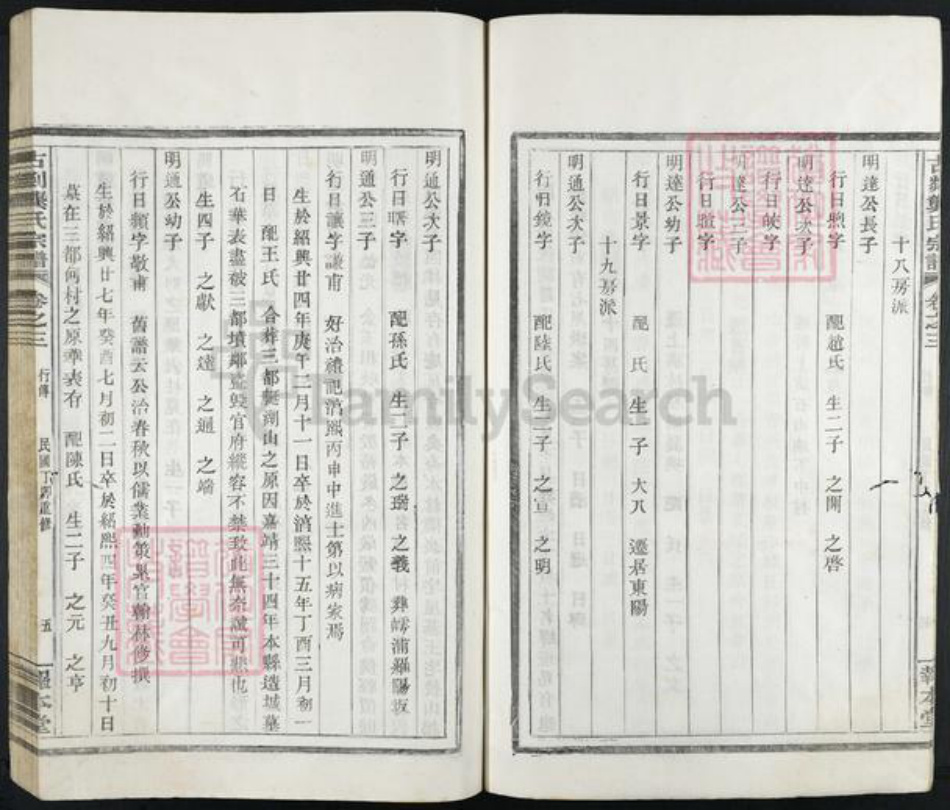 古剡葉氏宗譜 卷之三
報本堂
十八房派
明達公長子
行日煦字 配趙氏 生二子 之開 之啓
明達公次子
行日映字
明達公三子
行日暄字
明達公幼子
行日景字 配 氏 生一子 大八 遷居東陽
十九房派
明通公次子
行日鏡字 配陸氏 生二子 之宣 之明
明通公次子
行日曙字 配孫氏 生二子 之瑞 之義 葬嶀浦羅陽坂
明通公三子
行日讓字謙甫 好治禮記淳熙丙申中進士第以病家焉
生於紹興廿四年庚午二月十一日卒於淳熙十五年丁酉三月初一
日 配王氏 合葬三都艇湖山之原因嘉靖三十四年本縣造城墓
石華表盡被三都墳鄰盜毀官府縱容不禁致此無奈誠可悲也
生四子 之獻 之達 之通 之端
明通公幼子
行日顯字敬甫 舊譜云公治春秋以儒業勳策果官翰林修撰
生於紹興廿七年癸酉七月初二日卒於紹熙四年癸丑九月初十日
墓在三都何村之原華表存 配陳氏 生二子 之元 之亨
古剡葉氏宗譜 卷之三 行傳 民國丁酉重修 五 報本堂
FamilySearch